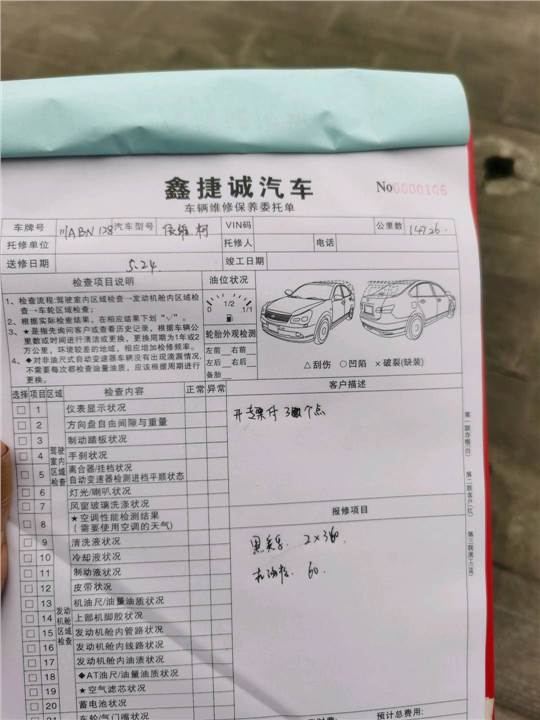 鑫捷诚汽车
No 0000106
车辆维修保养委托单
车牌号 川ABN128 汽车型号 VIN码 公里数 14726
托修单位 托修人 电话
送修日期 5.24 竣工日期
检查项目说明 油位状况
1、检查流程:驾驶室内区域检查→发动机舱内区域检查→车轮区域检查。
2、根据实际检查结果,在相应结果下划“√”。
3、★是指先询问客户或查看历史记录,根据车辆公里数或时间进行清洁或更换,更换周期为1年或2万公里,环境较差的地域,相应增加检修频率。
4、◆对非油尺式自动变速器车辆没有出现渗漏情况,不需要每次都检查油量油质,应该根据周期进行更换。
0 1/2 1/1
轮胎外观检测
左前 右前
左后 右后
备胎
△刮伤 ○凹陷 ×破裂(缺装)
选择 项目 区域 检查内容 正常 异常 客户描述
驾驶室内区域检查
1 仪表显示状况
2 方向盘自由间隙与重量
3 制动踏板状况
4 手刹状况
5 离合器/挂档状况
自动变速器检测进档平顺状态
6 灯光/喇叭状况
7 风窗玻璃洗涤状况
8 ★空调性能检测结果
(需要使用空调的天气)
报修项目
2×3
60.
发动机舱区域检查
9 清洗液状况
10 冷却液状况
11 制动液状况
12 皮带状况
13 机油尺/油量油质状况
14 上部机脚胶状况
15 发动机舱内管路状况
16 发动机舱内线路状况
17 发动机舱内油渍状况
18 ◆AT油尺/油量油质状况
19 ★空气滤芯状况
20 蓄电池状况
21 车轮/气门嘴状况
预计总费用:
第一联存根(白)
第二联客户(红)